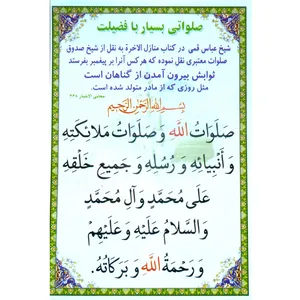 صلواتی بسیار با فضیلت
شیخ عباس قمی در کتاب منازل الاخرة به نقل از شیخ صدوق
صلوات معتبری نقل نموده که هر کس آنرا بر پیغمبر بفرستد
ثوابش بیرون آمدن از گناهان است
مثل روزی که از مادر متولد شده است.
معانی الاخبار ۳۶۸
بسم الله الرحمن الرحیم
صَلَوَاتُ اللهِ وَ صَلَوَاتُ مَلَائِکَتِهِ
وَ أَنْبِیَائِهِ وَ رُسُلِهِ وَ جَمِیعِ خَلْقِهِ
عَلَی مُحَمَّدٍ وَ آلِ مُحَمَّدٍ
وَ السَّلَامُ عَلَیْهِ وَ عَلَیْهِمْ
وَ رَحْمَةُ اللهِ وَ بَرَکَاتُهُ.